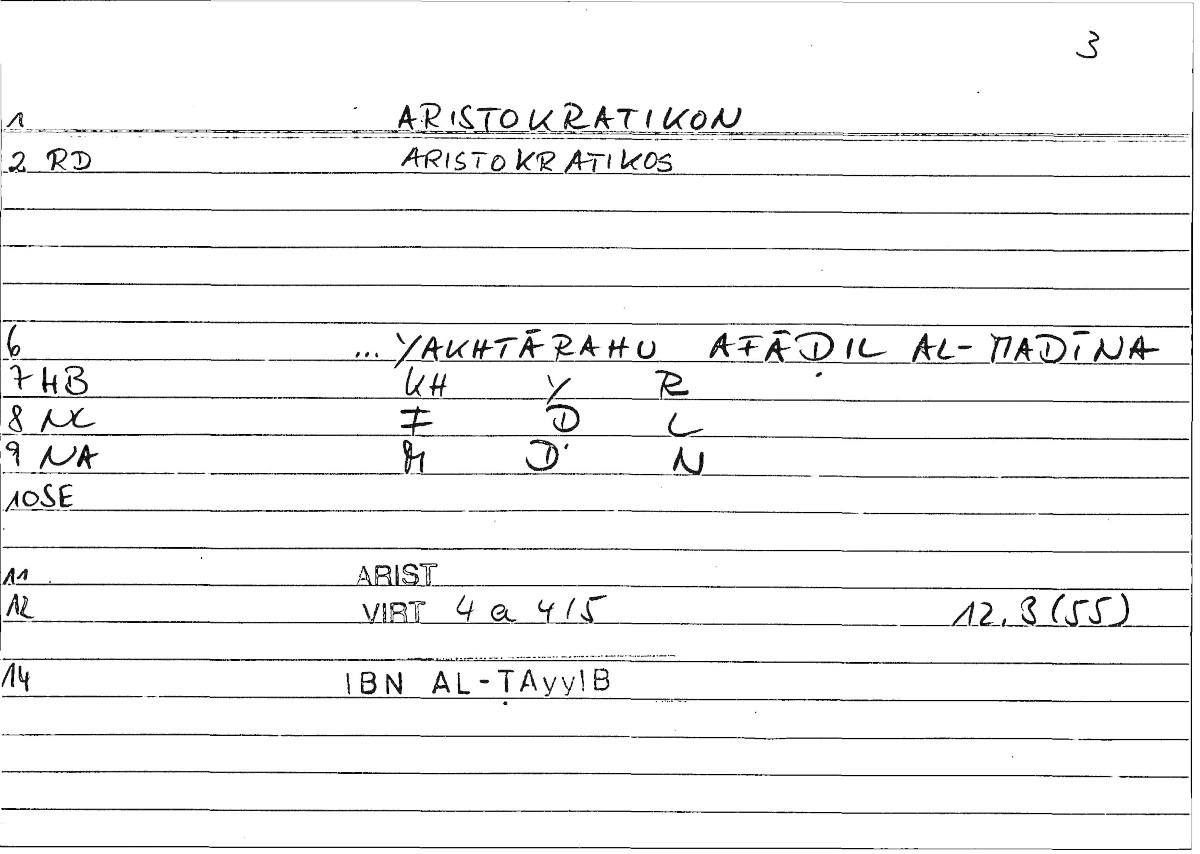 3
1 ARISTOKRATIKON
2 RD ARISTOKRATIKOS
6 ... YAKHTĀRAHU AFĀḌIL AL-MADĪNA
7 HB KH Y R
8 NC F D L
9 NA M D N
10 SE
11 ARIST
12 VIRT 4 a 4/5 12,3 (55)
14 IBN AL-ṬAyyIB